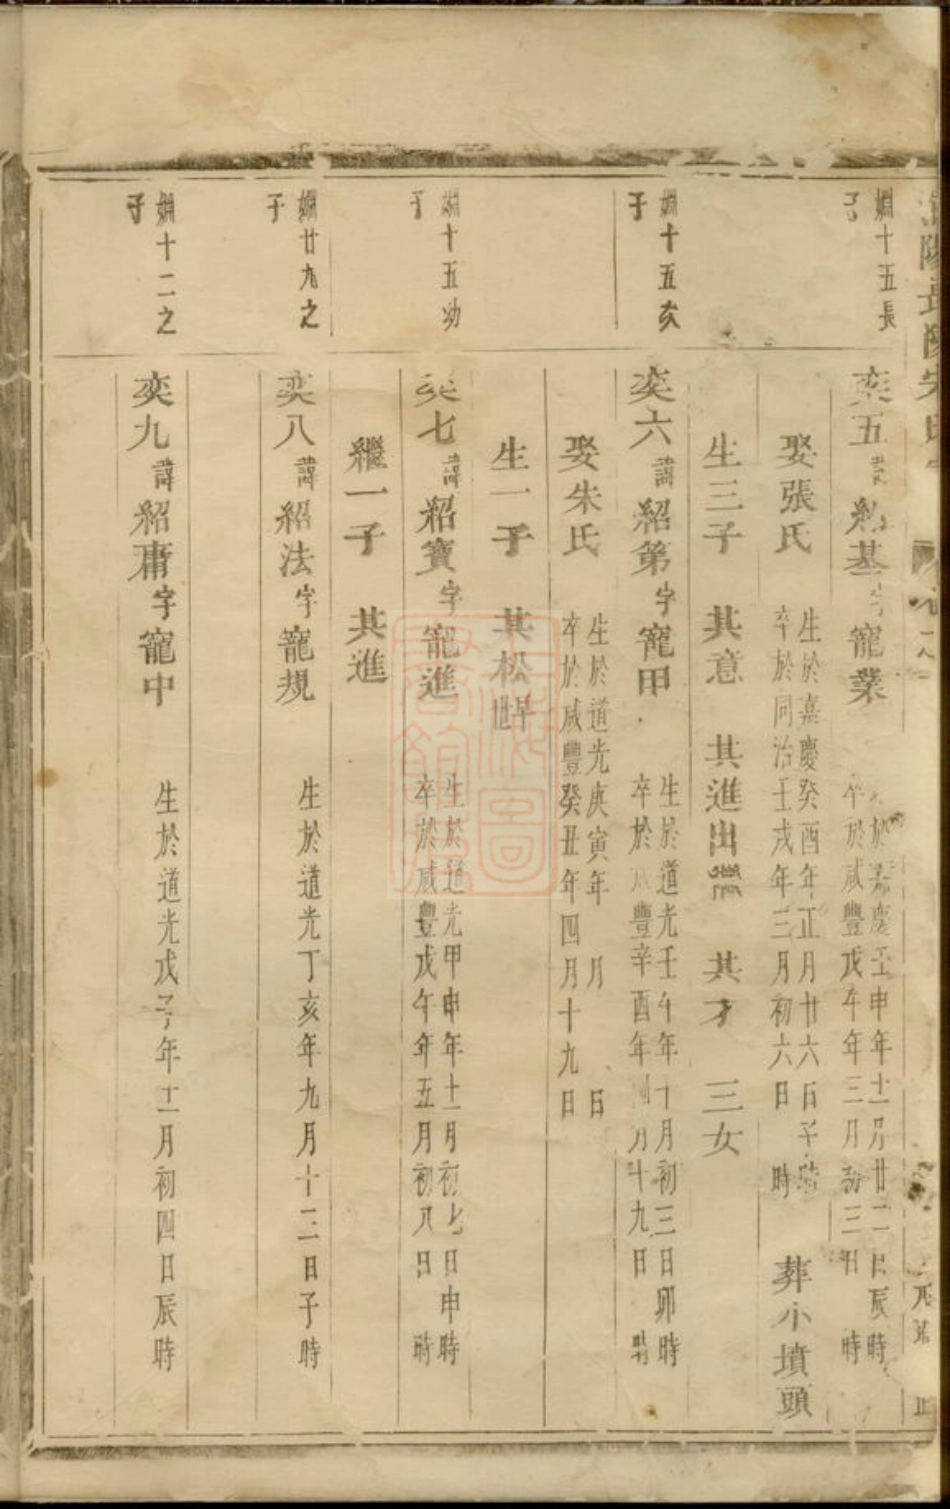 陽
嫻十五長
奕五
基
寵業
嘉慶壬申年十二月廿二日辰時
卒於咸豐戊午年三月初三日 時
娶張氏
生於嘉慶癸酉年正月廿六日子時
卒於同治壬戌年三月初六日 時
葬小墳頭
生三子 其意 其進出 其才 三女
嫻十五次
子
奕六諱紹第字寵甲
生於道光壬午年十月初三日卯時
卒於咸豐辛酉年 月十九日 時
娶朱氏
生於道光庚寅年 月 日
卒於咸豐癸丑年四月十九日
生一子 其松
嫻十五幼
子
奕七諱紹寶字寵進
生於道光甲申年十一月初七日申時
卒於咸豐戊午年五月初八日 時
繼一子 其進
嫻廿九之
子
奕八諱紹法字寵規
生於道光丁亥年九月十二日子時
嫻十二之
子
奕九諱紹庸字寵中
生於道光戊子年十一月初四日辰時